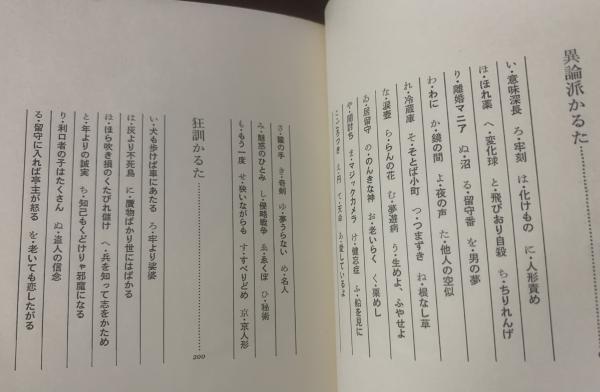 異論派かるた
い・意味深長 ろ・牢刻 は・化けもの に・人形責め
ほ・ほれ薬 へ・変化球 と・飛びおり自殺 ち・ちりれんげ
り・離婚マニア ぬ・沼 る・留守番 を・男の夢
わ・わに か・鏡の間 よ・夜の声 た・他人の空似
れ・冷蔵庫 そ・そとば小町 つ・つまずき ね・根なし草
な・涙壺 ら・らんの花 む・夢遊病 う・生めよ、ふやせよ
ゐ・居留守 の・のんきな神 お・老いらく く・栗めし
や・闇討ち ま・マジックカメラ け・健忘症 ふ・船を見に
て・天命 あ・愛しているよ
さ・猿の手 き・奇剣 ゆ・夢うらない め・名人
み・魅惑のひとみ し・侵略戦争 ゑ・ゑくぼ ひ・秘術
も・もう一度 せ・狭いながらも す・すべりどめ 京・京人形
狂訓かるた
200
い・犬も歩けば車にあたる ろ・牢より娑婆
は・灰より不死鳥 に・贋物ばかり世にはばかる
ほ・ほら吹き損のくたびれ儲け へ・兵を知って志をかため
と・年よりの誠実 ち・知己もくどけりゃ邪魔になる
り・利口者の子はたくさん ぬ・盗人の信念
る・留守に入れば亭主が怒る を・老いても恋したがる